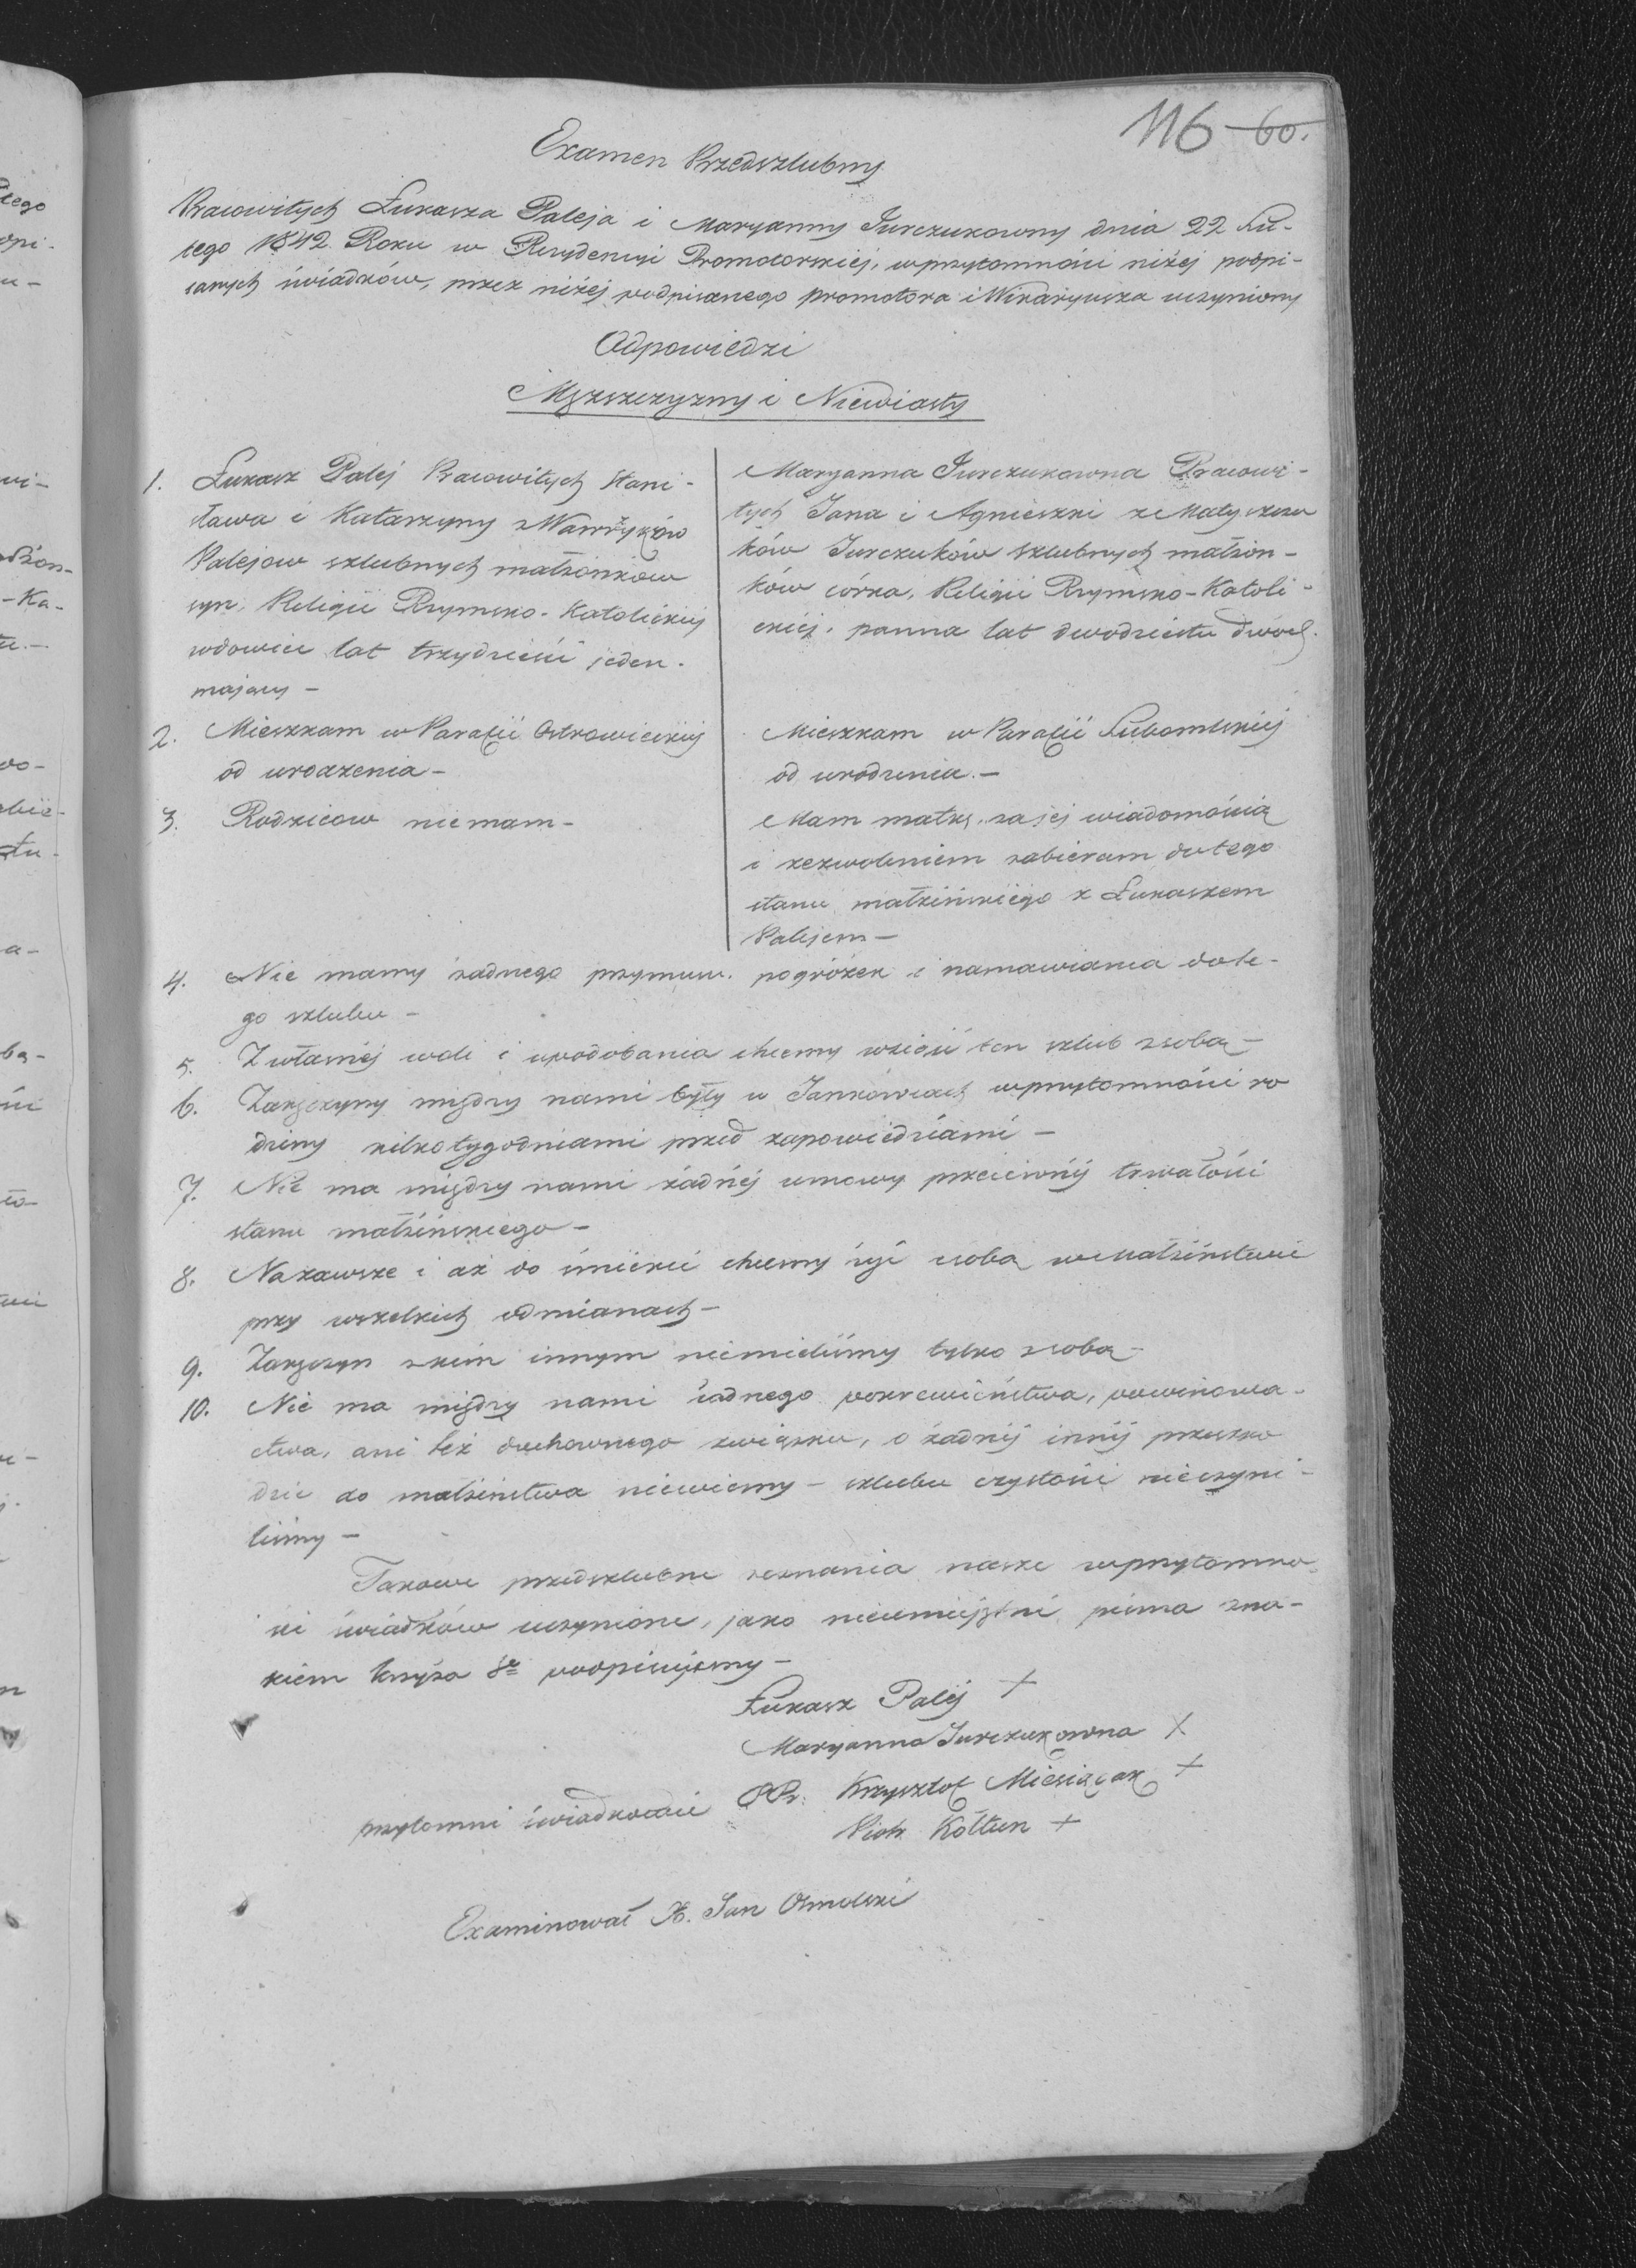 116 60.
Examen Przedszlubny
Pracowitych Łukasza Paleja i Maryanny Jurczukowny dnia 22 Lu-
tego 1842 Roku w Rezydencyi Promotorskiej, wprzytomności niżej podpi-
sanych świadków, przez niżej podpisanego promotora i Wikaryusza uczyniony
Odpowiedzi
Męzszczyzny i Niewiasty
1. Łukasz Palej Pracowitych Stani-
sława i Katarzyny z Wawrzyków
Palejow szlubnych małżonków
syn, Religii Rzymsko-Katolickiej
wdowiec lat trzydzieści jeden
mający -
Maryanna Jurczukowna Pracowi-
tych Jana i Agnieszki z Matyszczu
ków Jurczuków szlubnych małżon-
ków córka, Religii Rzymsko-Katoli-
ckiej, panna lat dwodziestu dwoch.
2. Mieszkam w Parafii Ostrowieckiej
od urodzenia -
Mieszkam w Parafii Lubomlskiej
od urodzenia. -
3. Rodzicow niemam -
Mam matkę, za jej wiadomością
i zezwoleniem zabieram do tego
stanu małżeńskiego z Łukaszem
Palejem -
4. Nie mamy żadnego przymusu, pogróżek i namawiania do te-
go szlubu -
5. Z własnej woli i upodobania chcemy wziąść ten szlub z sobą -
6. Zaręczyny między nami były w Jankowcach wprzytomności ro
dziny kilko tygodniami przed zapowiedziami -
7. Nie ma między nami żadnéj umowy przeciwnéj trwałości
stanu małżeńskiego -
8. Nazawsze i aż do śmierci chcemy żyć z sobą w małżeństwie
przy wszelkich odmianach -
9. Zaręczyn z kim innym niemieliśmy tylko z sobą -
10. Nie ma między nami żadnego pokrewieństwa, powinowa-
ctwa, ani też duchownego związku, o żadnéj innéj przeszko
dzie do małżeństwa niewiemy - szlubu czystości nieczyni-
liśmy -
Takowe przedszlubne zeznania nasze wprzytomno
ści świadków uczynione, jako nieumiejętni pisma zna-
kiem krzyża Sº podpisujemy -
Łukasz Palej X
Maryanna Jurczukowna X
przytomni świadkowie PPr. Krzysztof Miesiączak X
Piotr Kołtun +
Examinował X. Jan Osmolski